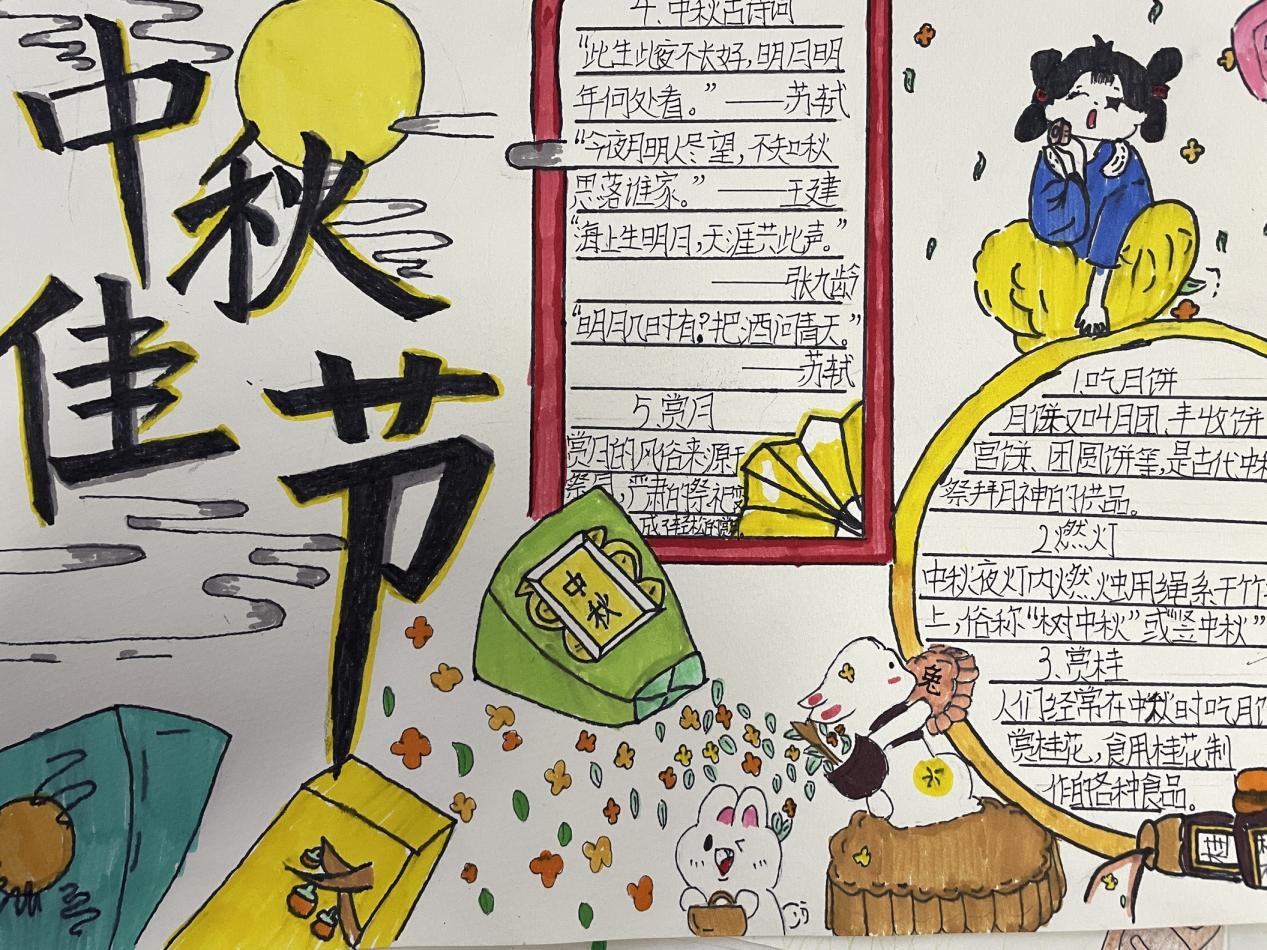 中秋
佳节
4.中秋古诗词
“此生此夜不长好,明月明
年何处看。”——苏轼
“今夜月明人尽望,不知秋
思落谁家。”——王建
“海上生明月,天涯共此声。”
——张九龄
“明月几时有?把酒问青天。”
——苏轼
5.赏月
赏月的风俗来源于
祭月,严肃的祭祀变
成了轻松的赏
中秋
1.吃月饼
月饼又叫月团、丰收饼
宫饼、团圆饼等,是古代中秋
祭拜月神的供品。
2.燃灯
中秋夜灯内燃烛用绳系于竹
上,俗称“树中秋”或“竖中秋”
3.赏桂
人们经常在中秋时吃月饼
赏桂花,食用桂花制
作的各种食品。
兔
桂